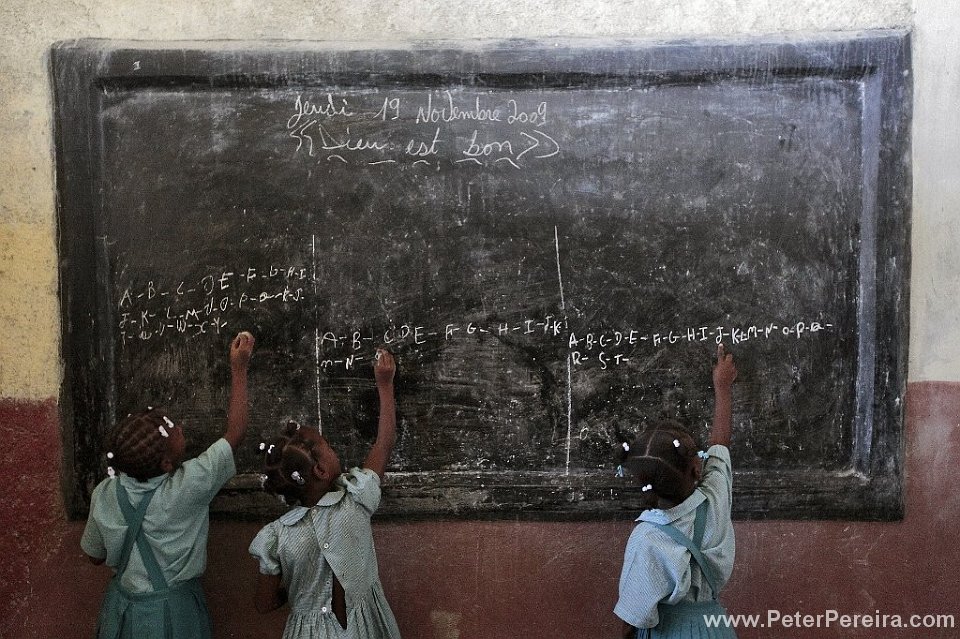 Jeudi 19 Novembre 2009
<<Dieu est bon>>
A-B-C-D E-F-G-H-I
J-K-L-M-N-O-P-Q-R-S-
T-U-V-W-X-Y-
A-B-C D E-F-G-H-I-J-K
M-N-
A-B-C-D-E-F-G-H-I-J-K-L-M-N-O-P-Q-
R-S-T-
www.PeterPereira.com